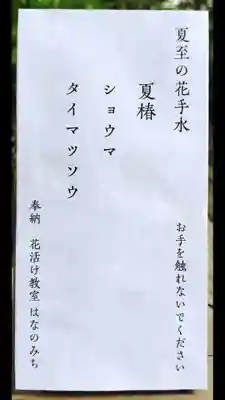 夏至の花手水
お手を触れないでください
夏椿
ショウマ
タイマツソウ
奉納 花活け教室 はなのみち